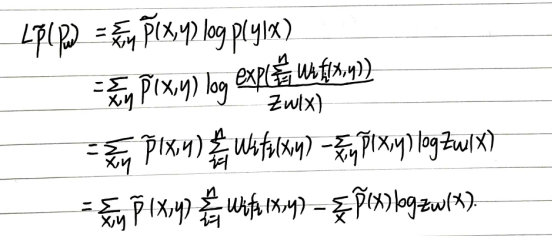 Lp̃(pw) = ∑x,y p̃(x,y) log p(y|x)
= ∑x,y p̃(x,y) log exp(∑i=1^n wifi(x,y)) / Zw(x)
= ∑x,y p̃(x,y) ∑i=1^n wifi(x,y) - ∑x,y p̃(x,y) log Zw(x)
= ∑x,y p̃(x,y) ∑i=1^n wifi(x,y) - ∑x p̃(x) log Zw(x).